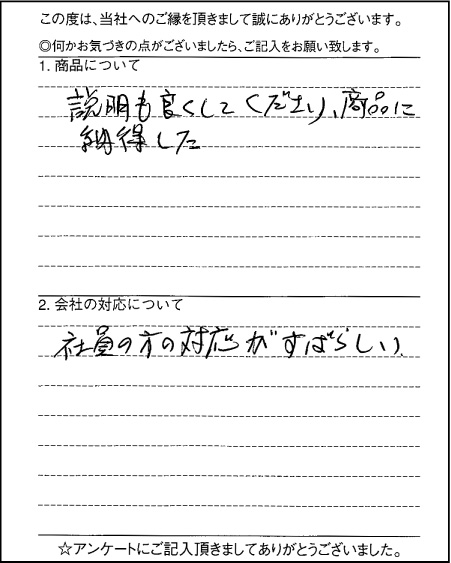 この度は、当社へのご縁を頂きまして誠にありがとうございます。
◎何かお気づきの点がございましたら、ご記入をお願い致します。
1. 商品について
説明も良くしてくださり、商品に
納得した
2. 会社の対応について
社員の方の対応がすばらしい、
☆アンケートにご記入頂きましてありがとうございました。